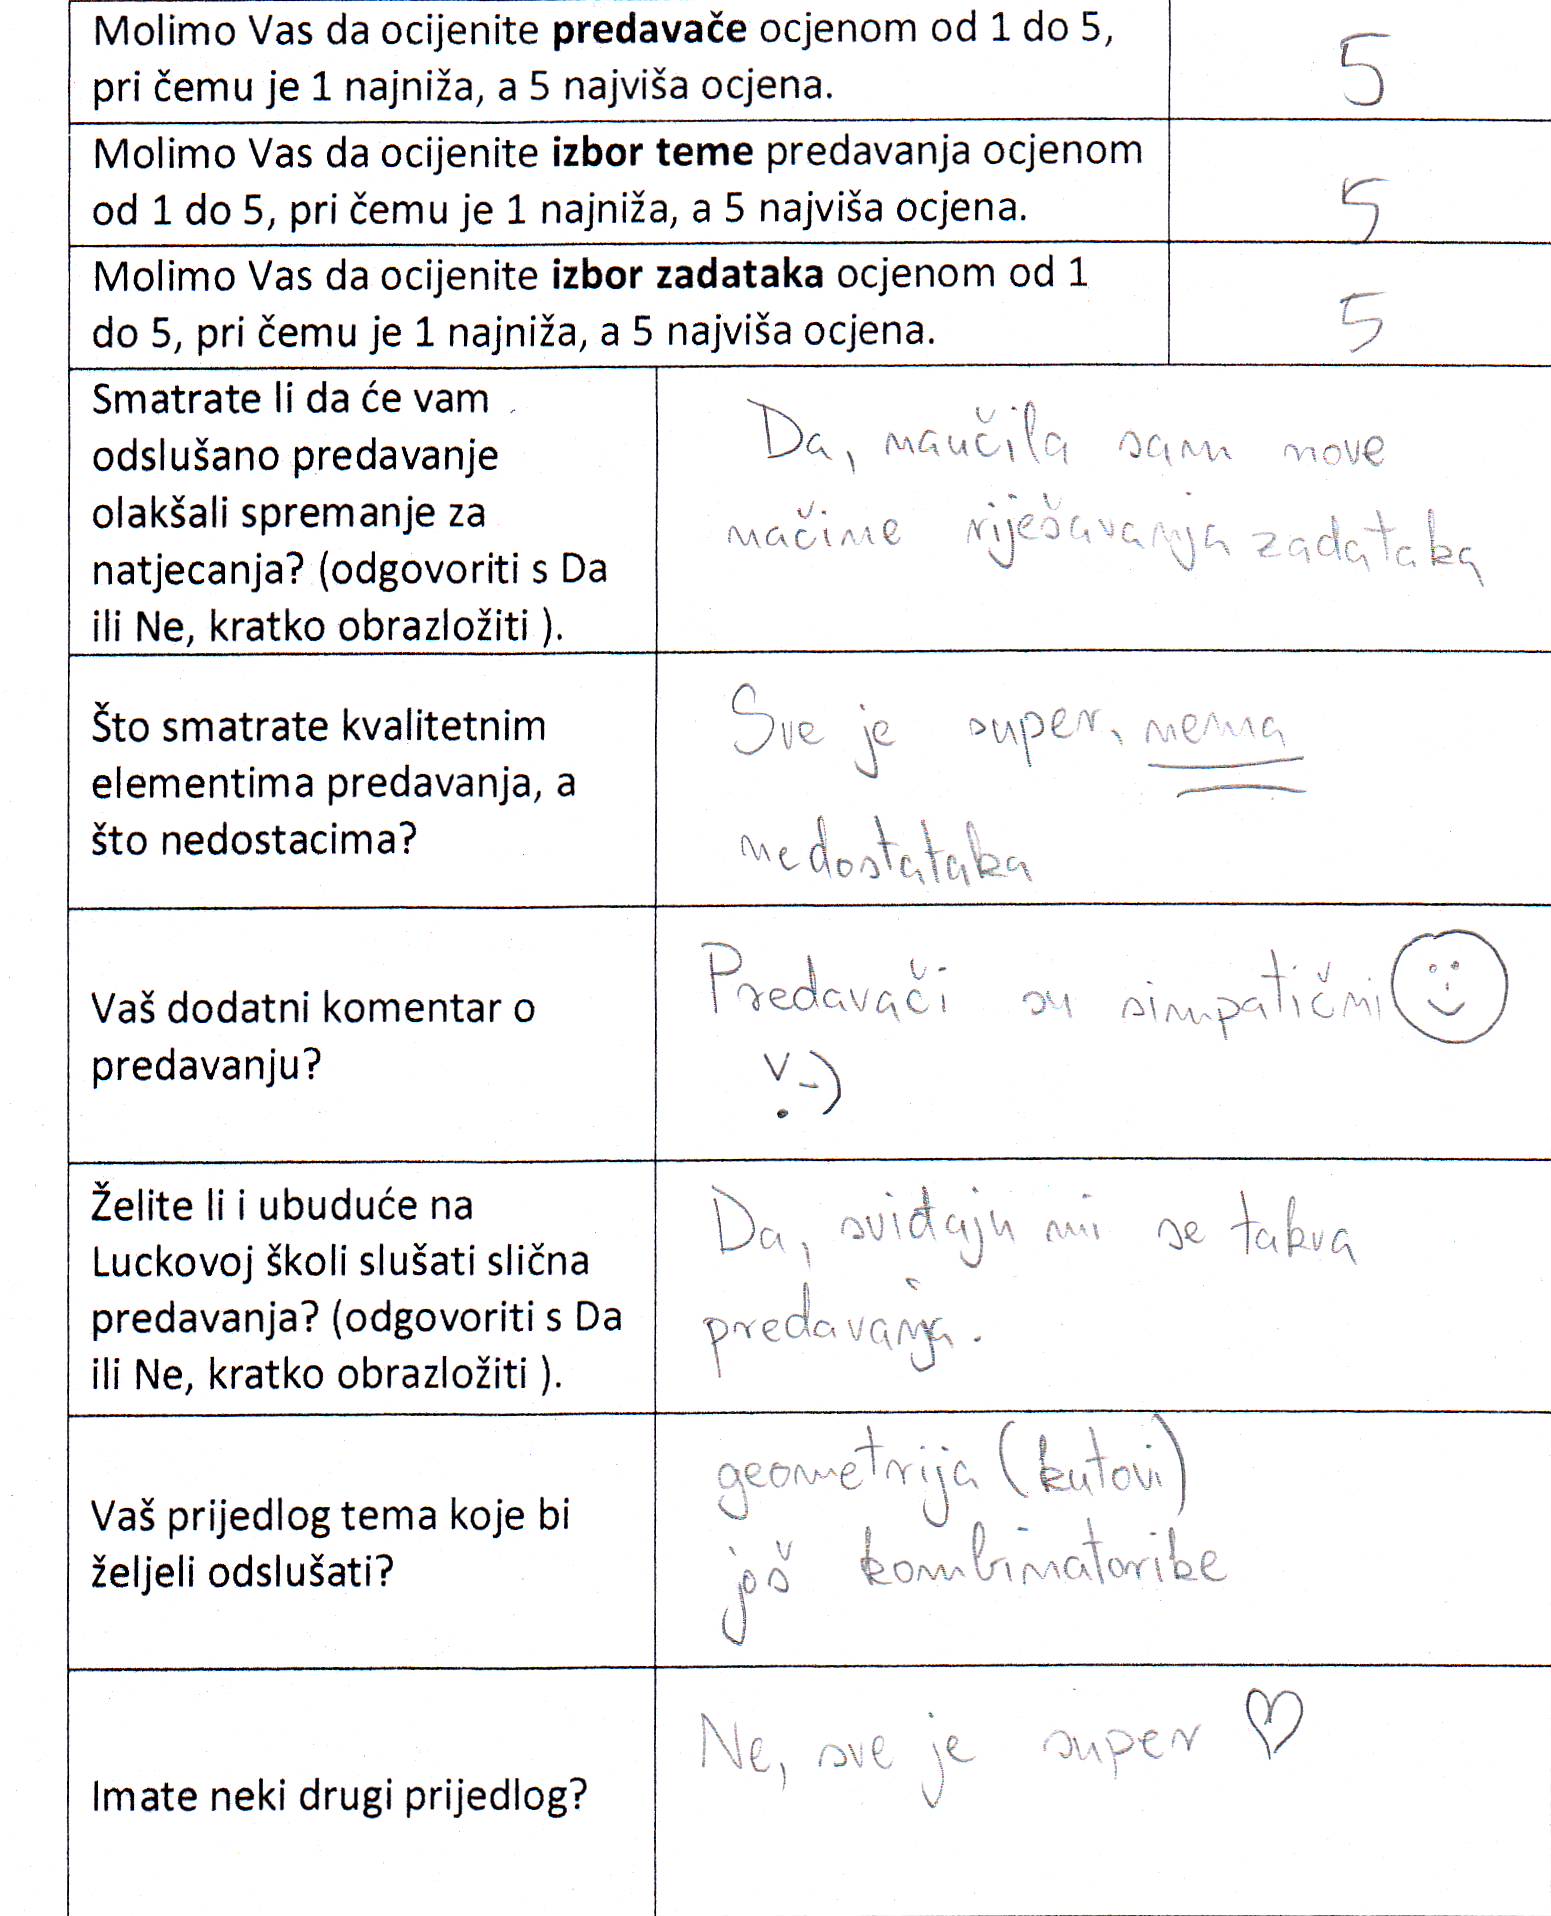 Molimo Vas da ocijenite predavače ocjenom od 1 do 5,
pri čemu je 1 najniža, a 5 najviša ocjena.
5
Molimo Vas da ocijenite izbor teme predavanja ocjenom
od 1 do 5, pri čemu je 1 najniža, a 5 najviša ocjena.
5
Molimo Vas da ocijenite izbor zadataka ocjenom od 1
do 5, pri čemu je 1 najniža, a 5 najviša ocjena.
5
Smatrate li da će vam
odslušano predavanje
olakšali spremanje za
natjecanja? (odgovoriti s Da
ili Ne, kratko obrazložiti ).
Da, naučila sam nove
načine riješavanja zadataka
Što smatrate kvalitetnim
elementima predavanja, a
što nedostacima?
Sve je super, nema
nedostataka
Vaš dodatni komentar o
predavanju?
Predavači su simpatični
Želite li i ubuduće na
Luckovoj školi slušati slična
predavanja? (odgovoriti s Da
ili Ne, kratko obrazložiti ).
Da, sviđaju mi se takva
predavanja.
Vaš prijedlog tema koje bi
željeli odslušati?
geometrija (kutovi)
još kombinatorike
Imate neki drugi prijedlog?
Ne, sve je super ♡